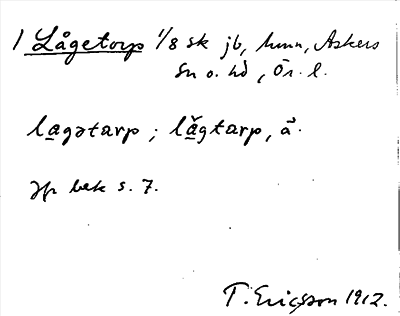 1 Lågetorp 1/8 sk jb, Askers
sn o. hd, Ör. l.
lagətarp; lǎgtarp, å.
bek s. 7.
T. Ericsson 1912.